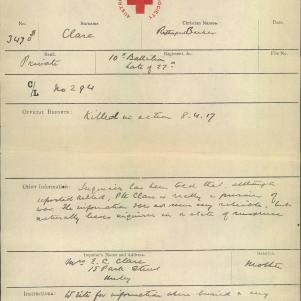 SOCIETY
No.
Surname.
Christian Names.
Date.
3470B
Clare
Rank.
Regiment, &c.
File No.
Private
10th Battalion
late of 27th
C/L No 294
OFFICIAL REPORTS: Killed in action 8.4.17
Other Information: Inquirer has been told that, although
reported killed, Pte Clare is really a prisoner of
war. The information does not seem very reliable, but
naturally leaves inquirer in a state of suspense
Inquirer's Name and Address.
Relation.
Mrs. E. C. Clare
15 Park Street
Mother
Instructions: Write for information where buried & any